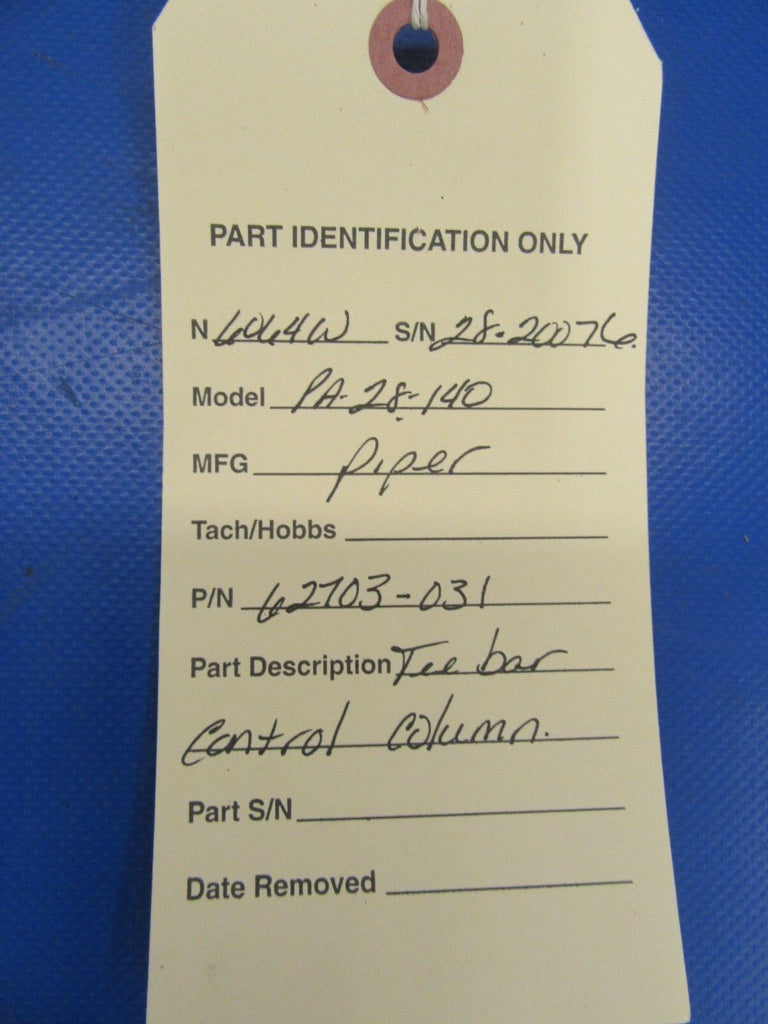 PART IDENTIFICATION ONLY
N 6064W S/N 28-20076.
Model PA-28-140
MFG Piper
Tach/Hobbs
P/N 62703-031
Part Description Tee bar
Control Column.
Part S/N
Date Removed